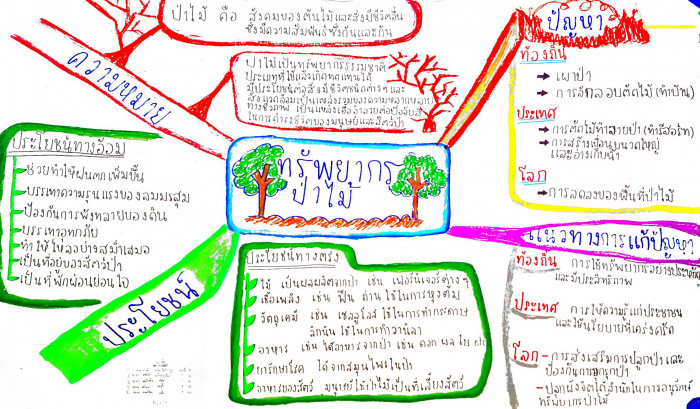 ทรัพยากร
ป่าไม้
ความหมาย
ป่าไม้ คือ สังคมของต้นไม้และสิ่งมีชีวิตอื่น
ซึ่งมีความสัมพันธ์ซึ่งกันและกัน
ป่าไม้เป็นทรัพยากรธรรมชาติ
ประเภทที่ใช้แล้วเกิดทดแทนได้
มีประโยชน์ต่อสิ่งมีชีวิตชนิดต่างๆ และ
สิ่งแวดล้อมเป็นแหล่งรวมของความหลากหลาย
ทางชีวภาพ เป็นแหล่งเอื้ออำนวยต่อปัจจัยสี่
ในการดำรงชีวิตของมนุษย์และสัตว์ป่า
ปัญหา
ท้องถิ่น
เผาป่า
การลักลอบตัดไม้ (ทำบ้าน)
ประเทศ
การตัดไม้ทำลายป่า (ทำรีสอร์ท)
การสร้างเขื่อนขนาดใหญ่
และอ่างเก็บน้ำ
โลก
การลดลงของพื้นที่ป่าไม้
แนวทางการแก้ปัญหา
ท้องถิ่น การใช้ทรัพยากรอย่างประหยัด
และมีประสิทธิภาพ
ประเทศ การให้ความรู้แก่ประชาชน
และใช้นโยบายที่เคร่งครัด
โลก - การส่งเสริมการปลูกป่า และ
ป้องกันการบุกรุกป่า
- ปลูกฝังจิตใต้สำนึกในการอนุรักษ์
ทรัพยากรป่าไม้
ประโยชน์
ประโยชน์ทางอ้อม
ช่วยทำให้ฝนตกเพิ่มขึ้น
บรรเทาความรุนแรงของลมมรสุม
ป้องกันการพังทลายของดิน
บรรเทาอุทกภัย
ทำให้ไหลอย่างสม่ำเสมอ
เป็นที่อยู่ของสัตว์ป่า
เป็นที่พักผ่อนหย่อนใจ
ประโยชน์ทางตรง
ไม้ เป็นผลผลิตจากป่า เช่น เฟอร์นิเจอร์ต่างๆ
เชื้อเพลิง เช่น ฟืน ถ่าน ใช้ในการหุงต้ม
วัตถุเคมี เช่น เซลลูโลส ใช้ในการทำกระดาษ
ลิกนิน ใช้ในการทำวานิลา
อาหาร เช่น ได้อาหารจากป่า เช่น ดอก ผล ใบ
ยารักษาโรค ได้จากสมุนไพรในป่า
อาหารของสัตว์ มนุษย์ใช้ป่าไม้เป็นที่เลี้ยงสัตว์